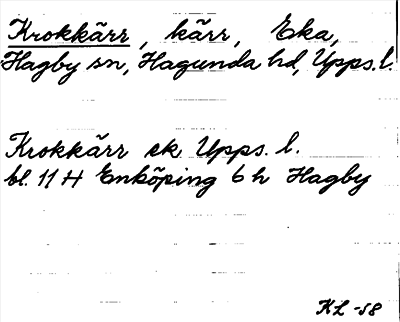 Krokkärr, kärr, Eka,
Hagby sn, Hagunda hd, Upps. l.
Krokkärr ek Upps. l.
bl. 11 H Enköping 6 h Hagby
KL -58